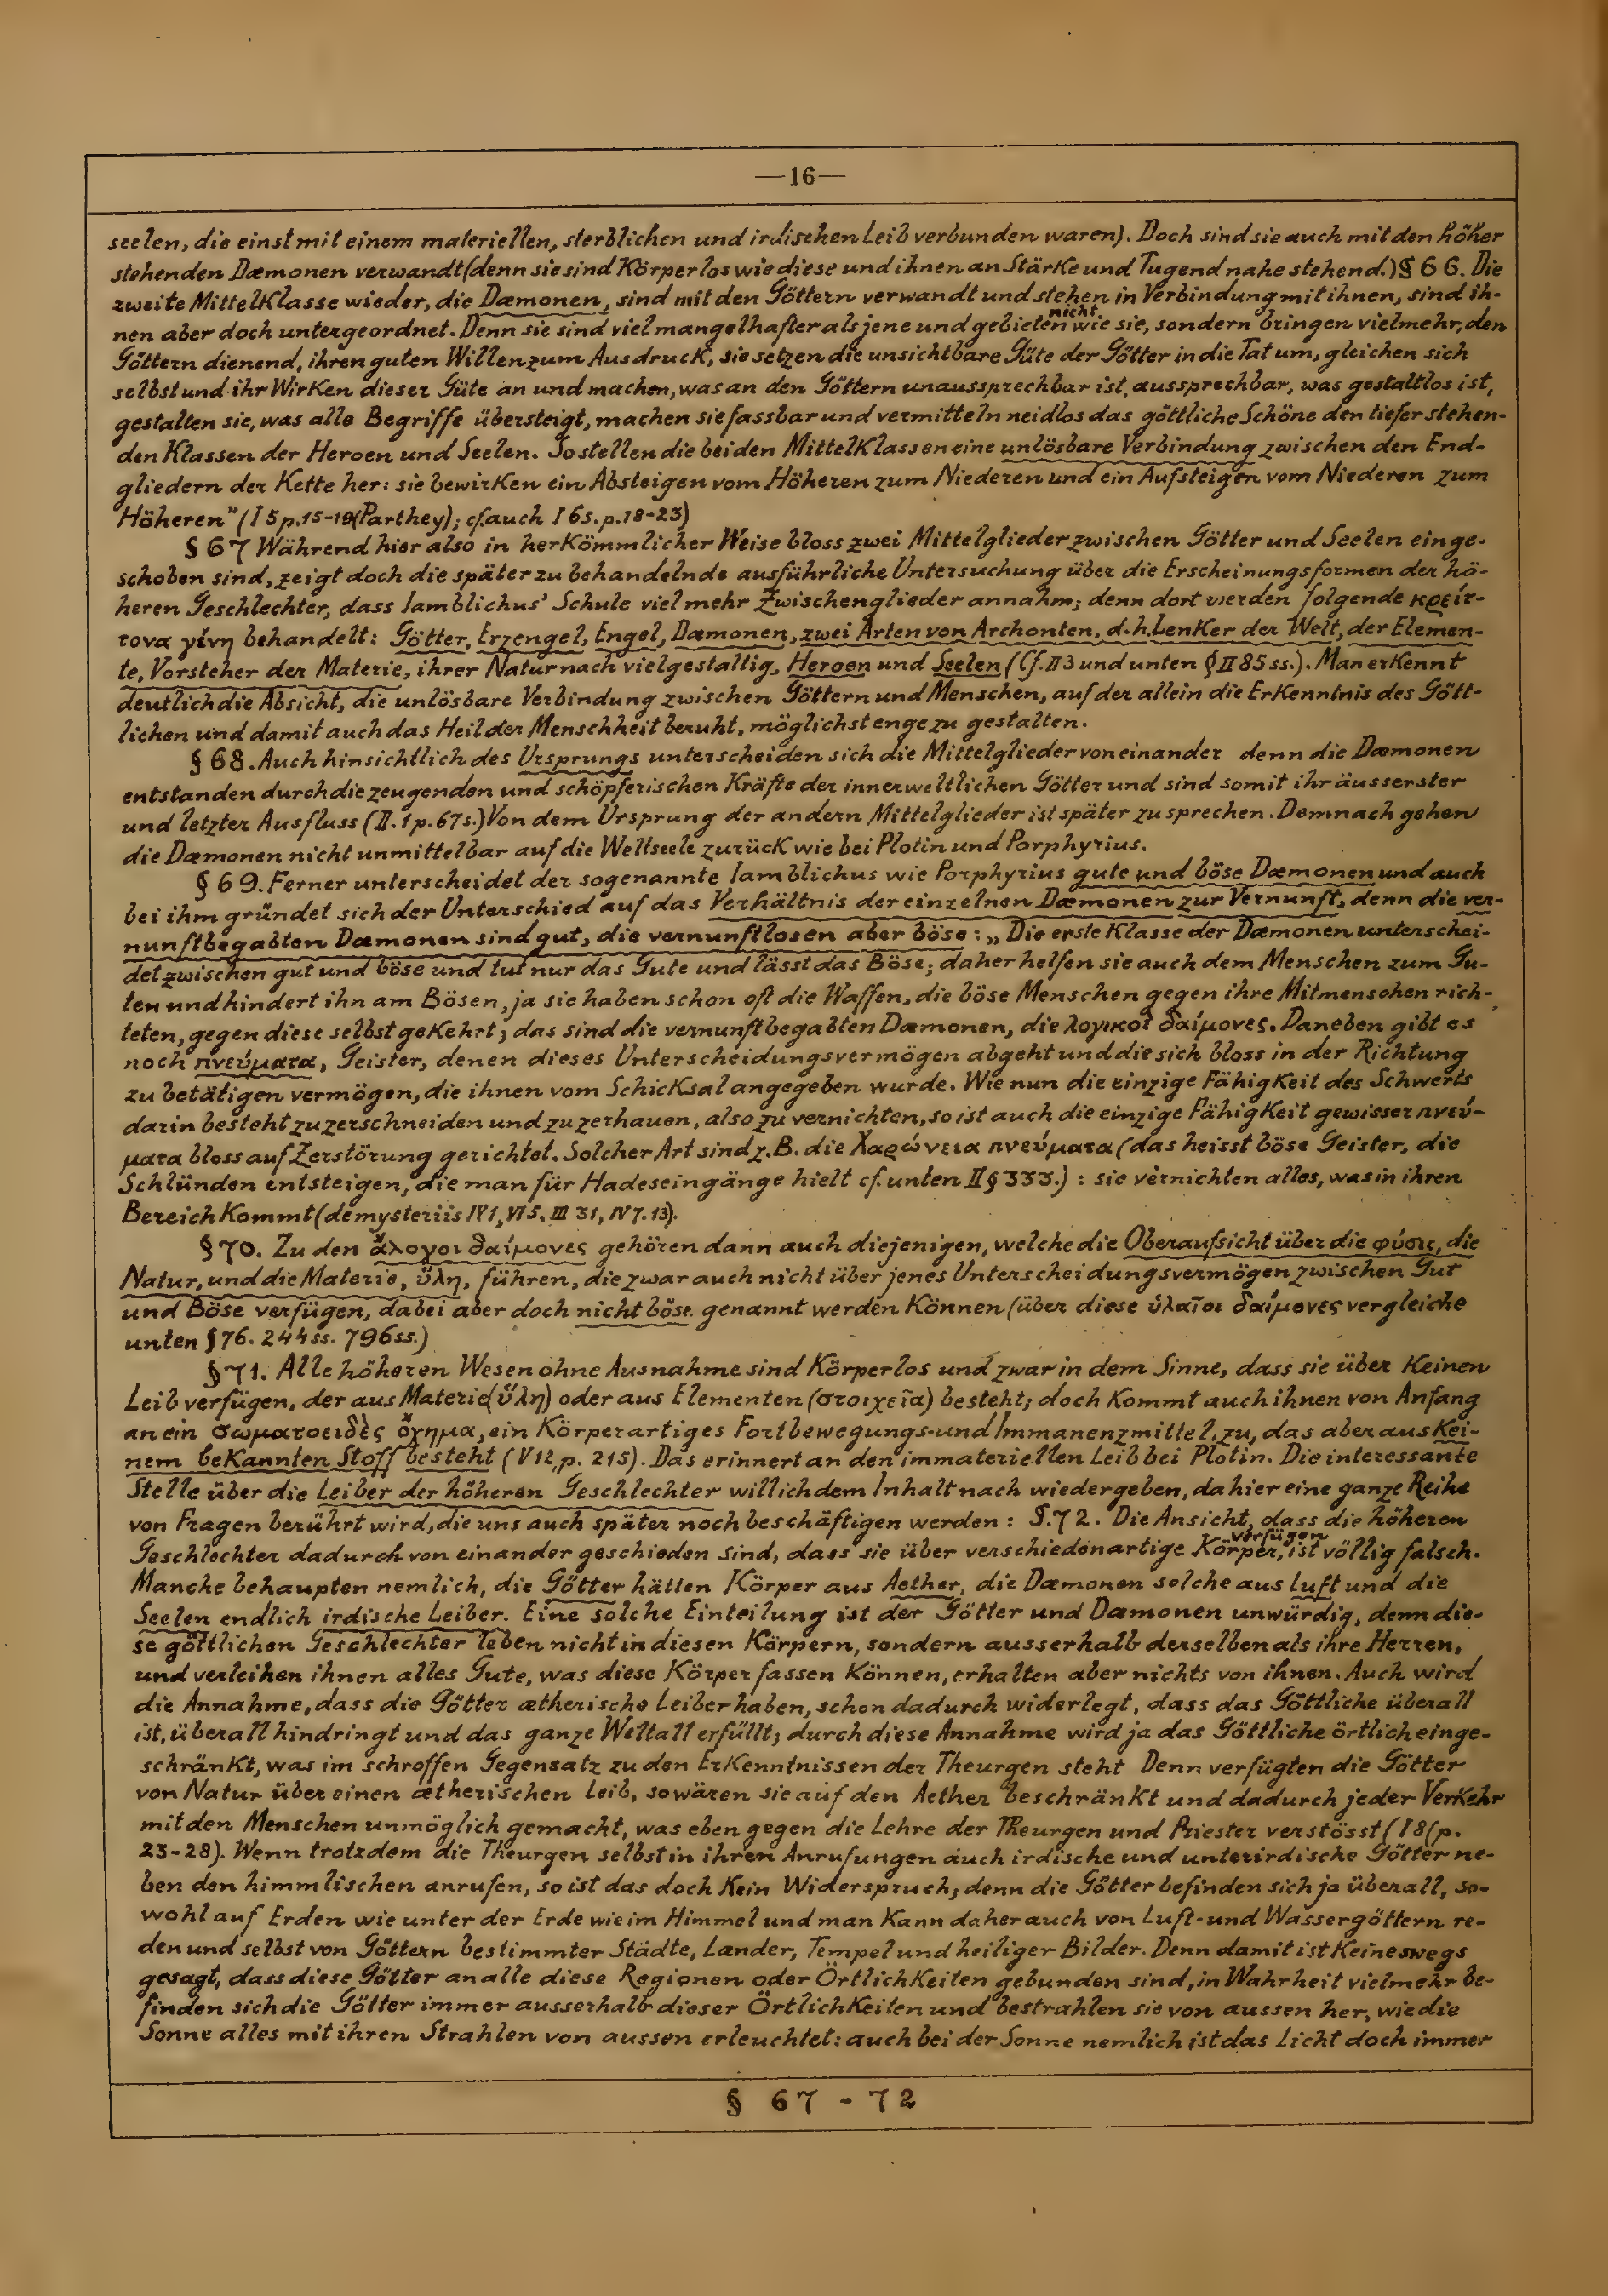 —16—
seelen, die einst mit einem materiellen, sterblichen und irdischen Leib verbunden waren). Doch sind sie auch mit den höher
stehenden Dæmonen verwandt (denn sie sind körperlos wie diese und ihnen an Stärke und Tugend nahe stehend.) § 66. Die
zweite Mittelklasse wieder, die Dæmonen, sind mit den Göttern verwandt und stehen in Verbindung mit ihnen, sind ih-
nen aber doch untergeordnet. Denn sie sind viel mangelhafter als jene und gebieten nicht wie sie, sondern bringen vielmehr, den
Göttern dienend, ihren guten Willen zum Ausdruck, sie setzen die unsichtbare Güte der Götter in die Tat um, gleichen sich
selbst und ihr Wirken dieser Güte an und machen, was an den Göttern unaussprechbar ist, aussprechbar, was gestaltlos ist,
gestalten sie, was alle Begriffe übersteigt, machen sie fassbar und vermitteln neidlos das göttliche Schöne den tiefer stehen-
den Klassen der Heroen und Seelen. So stellen die beiden Mittelklassen eine unlösbare Verbindung zwischen den End-
gliedern der Kette her: sie bewirken ein Absteigen vom Höheren zum Niederen und ein Aufsteigen vom Niederen zum
Höheren" (I 5 p. 15-19 (Parthey); cf. auch I 6 s. p. 18-23)
§ 67 Während hier also in herkömmlicher Weise bloss zwei Mittelglieder zwischen Götter und Seelen einge-
schoben sind, zeigt doch die später zu behandelnde ausführliche Untersuchung über die Erscheinungsformen der hö-
heren Geschlechter, dass Iamblichus' Schule viel mehr Zwischenglieder annahm; denn dort werden folgende κρείτ-
τονα γένη behandelt: Götter, Erzengel, Engel, Dæmonen, zwei Arten von Archonten, d.h. Lenker der Welt, der Elemen-
te, Vorsteher der Materie, ihrer Natur nach vielgestaltig, Heroen und Seelen (Cf. II 3 und unten § II 85 ss.). Man erkennt
deutlich die Absicht, die unlösbare Verbindung zwischen Göttern und Menschen, auf der allein die Erkenntnis des Gött-
lichen und damit auch das Heil der Menschheit beruht, möglichst enge zu gestalten.
§ 68. Auch hinsichtlich des Ursprungs unterscheiden sich die Mittelglieder von einander denn die Dæmonen
entstanden durch die zeugenden und schöpferischen Kräfte der innerweltlichen Götter und sind somit ihr äusserster
und letzter Ausfluss (II. 1 p. 67 s.) Von dem Ursprung der andern Mittelglieder ist später zu sprechen. Demnach gehen
die Dæmonen nicht unmittelbar auf die Weltseele zurück wie bei Plotin und Porphyrius.
§ 69. Ferner unterscheidet der sogenannte Iamblichus wie Porphyrius gute und böse Dæmonen und auch
bei ihm gründet sich der Unterschied auf das Verhältnis der einzelnen Dæmonen zur Vernunft, denn die ver-
nunftbegabten Dæmonen sind gut, die vernunftlosen aber böse: „Die erste Klasse der Dæmonen unterschei-
det zwischen gut und böse und tut nur das Gute und lässt das Böse; daher helfen sie auch dem Menschen zum Gu-
ten und hindert ihn am Bösen, ja sie haben schon oft die Waffen, die böse Menschen gegen ihre Mitmenschen rich-
teten, gegen diese selbst gekehrt; das sind die vernunftbegabten Dæmonen, die λογικοὶ δαίμονες. Daneben gibt es
noch πνεύματα, Geister, denen dieses Unterscheidungsvermögen abgeht und die sich bloss in der Richtung
zu betätigen vermögen, die ihnen vom Schicksal angegeben wurde. Wie nun die einzige Fähigkeit des Schwerts
darin besteht zu zerschneiden und zu zerhauen, also zu vernichten, so ist auch die einzige Fähigkeit gewisser πνεύ-
ματα bloss auf Zerstörung gerichtet. Solcher Art sind z.B. die Χαρώνεια πνεύματα (das heisst böse Geister, die
Schlünden entsteigen, die man für Hadeseingänge hielt cf. unten II § 333.) : sie vernichten alles, was in ihren
Bereich kommt (de mysteriis IV 1, VI 5, III 31, IV 7. 13).
§ 70. Zu den ἄλογοι δαίμονες gehören dann auch diejenigen, welche die Oberaufsicht über die φύσις, die
Natur, und die Materie, ὕλη, führen, die zwar auch nicht über jenes Unterscheidungsvermögen zwischen Gut
und Böse verfügen, dabei aber doch nicht böse genannt werden können (über diese ὑλαῖοι δαίμονες vergleiche
unten § 76. 244 ss. 796 ss.)
§ 71. Alle höheren Wesen ohne Ausnahme sind körperlos und zwar in dem Sinne, dass sie über keinen
Leib verfügen, der aus Materie (ὕλη) oder aus Elementen (στοιχεῖα) besteht; doch kommt auch ihnen von Anfang
an ein σωματοειδὲς ὄχημα, ein körperartiges Fortbewegungs- und Immanenzmittel, zu, das aber aus kei-
nem bekannten Stoff besteht (V 12, p. 215). Das erinnert an den immateriellen Leib bei Plotin. Die interessante
Stelle über die Leiber der höheren Geschlechter will ich dem Inhalt nach wiedergeben, da hier eine ganze Reihe
von Fragen berührt wird, die uns auch später noch beschäftigen werden : §. 72. Die Ansicht, dass die höheren
Geschlechter dadurch von einander geschieden sind, dass sie über verschiedenartige Körper verfügen, ist völlig falsch.
Manche behaupten nemlich, die Götter hätten Körper aus Aether, die Dæmonen solche aus Luft und die
Seelen endlich irdische Leiber. Eine solche Einteilung ist der Götter und Dæmonen unwürdig, denn die-
se göttlichen Geschlechter leben nicht in diesen Körpern, sondern ausserhalb derselben als ihre Herren,
und verleihen ihnen alles Gute, was diese Körper fassen können, erhalten aber nichts von ihnen. Auch wird
die Annahme, dass die Götter ætherische Leiber haben, schon dadurch widerlegt, dass das Göttliche überall
ist, überall hindringt und das ganze Weltall erfüllt; durch diese Annahme wird ja das Göttliche örtlich einge-
schränkt, was im schroffen Gegensatz zu den Erkenntnissen der Theurgen steht. Denn verfügten die Götter
von Natur über einen ætherischen Leib, so wären sie auf den Aether beschränkt und dadurch jeder Verkehr
mit den Menschen unmöglich gemacht, was eben gegen die Lehre der Theurgen und Priester verstösst (I 8 (p.
23-28). Wenn trotzdem die Theurgen selbst in ihren Anrufungen auch irdische und unterirdische Götter ne-
ben den himmlischen anrufen, so ist das doch kein Widerspruch, denn die Götter befinden sich ja überall, so-
wohl auf Erden wie unter der Erde wie im Himmel und man kann daher auch von Luft- und Wassergöttern re-
den und selbst von Göttern bestimmter Städte, Lænder, Tempel und heiliger Bilder. Denn damit ist keineswegs
gesagt, dass diese Götter an alle diese Regionen oder Örtlichkeiten gebunden sind, in Wahrheit vielmehr be-
finden sich die Götter immer ausserhalb dieser Örtlichkeiten und bestrahlen sie von aussen her, wie die
Sonne alles mit ihren Strahlen von aussen erleuchtet: auch bei der Sonne nemlich ist das Licht doch immer
§ 67 - 72